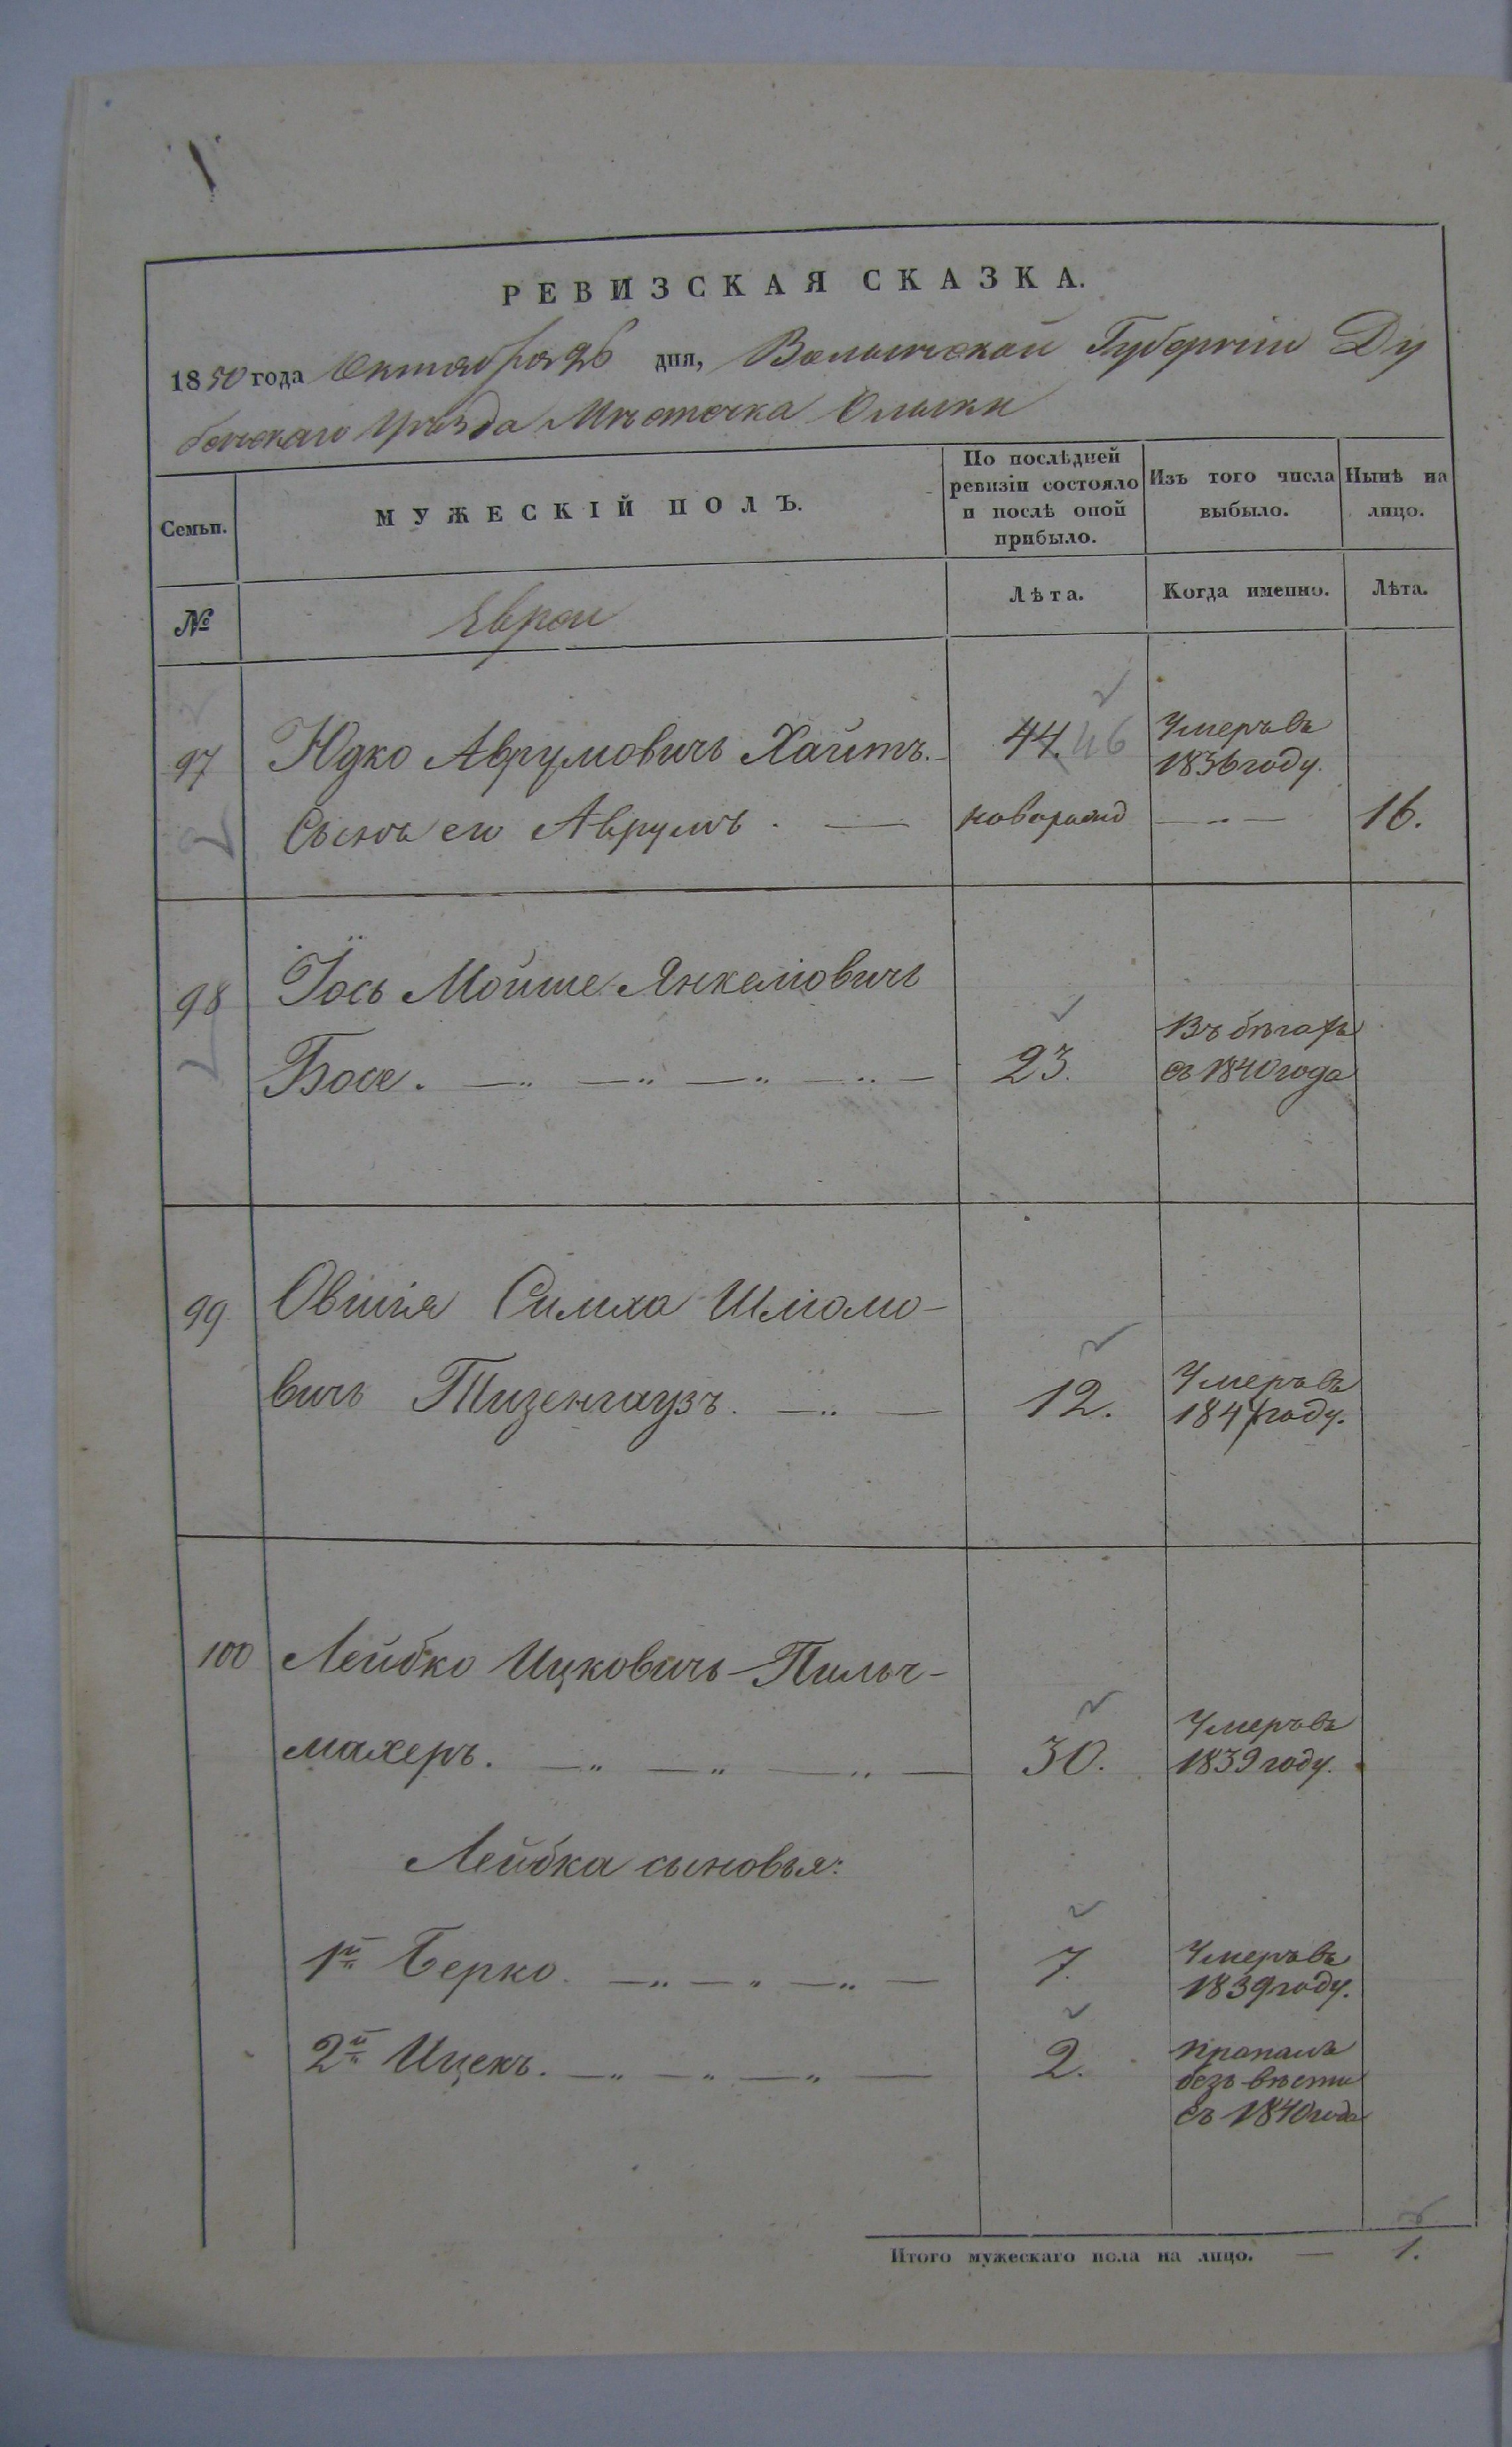 РЕВИЗСКАЯ СКАЗКА.
1850 года Октября 26 дня, Волынской Губерніи Ду
бенскаго Уѣзда Мѣстечка Олыки
Семьи.
МУЖЕСКІЙ ПОЛЪ.
По послѣдней ревизіи состояло и послѣ оной прибыло.
Изъ того числа выбыло.
Нынѣ на лицо.
№
Евреи
Лѣта.
Когда именно.
Лѣта.
97 Юдко Аврумовичъ Хаитъ. 44. 46 Умеръ въ
1836 году.
Сынъ его Аврумъ. — новорожд — „ — 16.
98 Іось Мойше Янкеліовичъ
Босе. — „ — „ — „ — „ — 23. Въ бѣгахъ
съ 1840 года
99 Овшія Симха Шліомо-
вичъ Тизенгаузъ. — „ — 12. Умеръ въ
1841 году.
100 Лейбко Ицковичъ Пильч-
махеръ. — „ — „ — „ — 30. Умеръ въ
1839 году.
Лейбка сыновья:
1й Берко. — „ — „ — „ — 7. Умеръ въ
1839 году.
2й Ицекъ. — „ — „ — „ — 2. пропалъ
безъ вѣсти
съ 1840 года
Итого мужескаго пола на лицо. — 1.